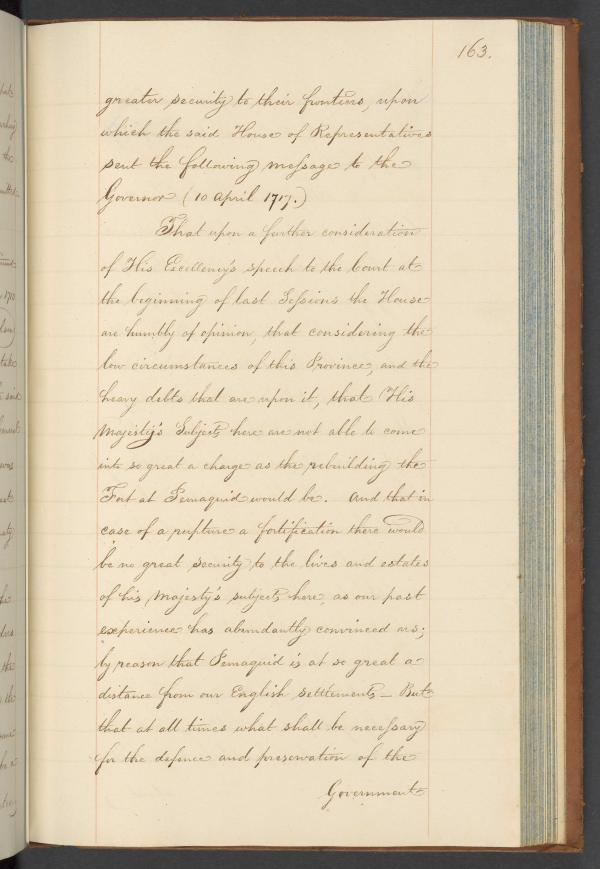 163.
greater security to their frontiers, upon
which the said House of Representatives
sent the following message to the
Governor (10 April 1717.)
That upon a further consideration
of His Excellency's speech to the Court at
the beginning of last Sessions the House
are humbly of opinion, that considering the
low circumstances of this Province, and the
heavy debts that are upon it, that His
Majesty's Subjects here are not able to come
into so great a charge as the rebuilding the
Fort at Pemaquid would be. And that in
case of a rupture a fortification there would
be no great security to the lives and estates
of his Majesty's subjects here, as our past
experience has abundantly convinced us;
by reason that Pemaquid is at so great a
distance from our English settlements – But
that at all times what shall be necessary
for the defence and preservation of the
Government